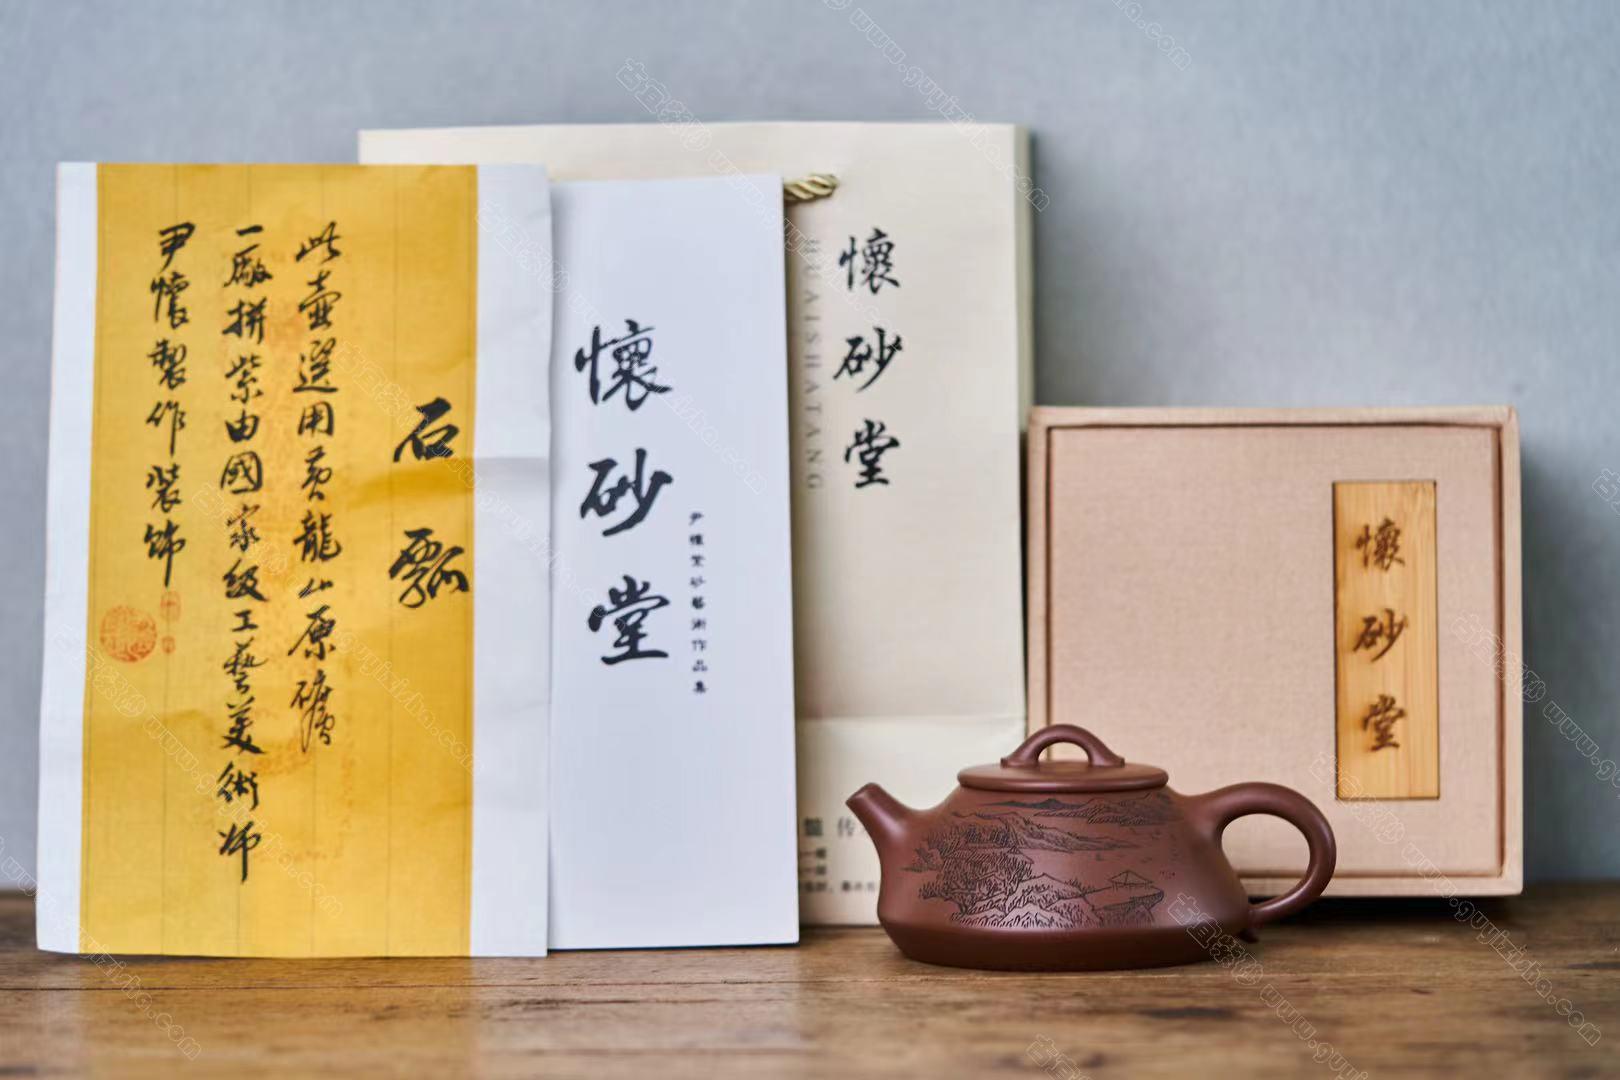 石瓢
此壺選用黃龍山原礦
一廠拼紫由國家級工藝美術師
尹懷製作裝飾
懷砂堂
尹懷紫砂藝術作品集
懷砂堂
HUAISHATANG
懷砂堂
www.guyiziho.com